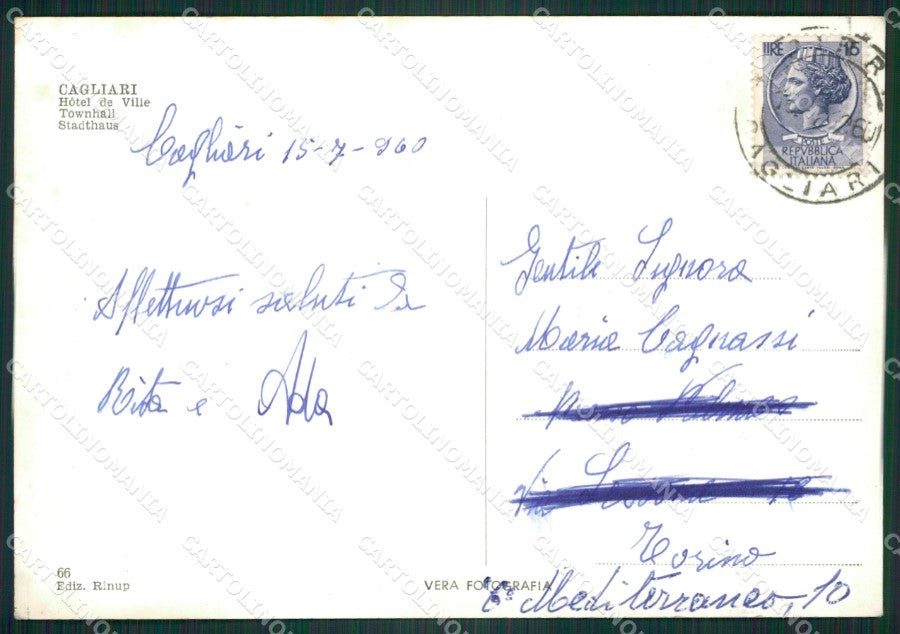 CAGLIARI
Hôtel de Ville
Townhall
Stadthaus
Cagliari 15-7-960
Affettuosi saluti da
Rita e Ada
LIRE 15
POSTE
REPVBBLICA
ITALIANA
CAGLIARI
Gentile Signora
Maria Cagnassi
Via
Torino
C° Mediterraneo, 10
66
Ediz. Rinup
VERA FOTOGRAFIA
CARTOLINOMANIA